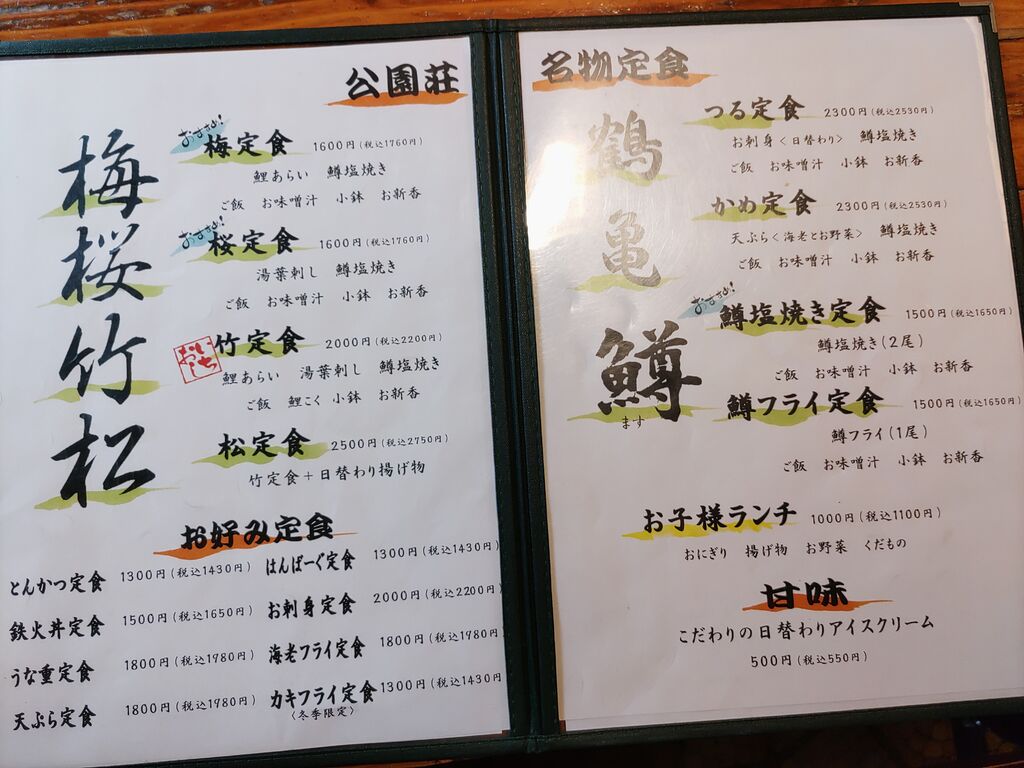 公園荘
梅
桜
竹
松
おすすめ!
梅定食 1600円(税込1760円)
鯉あらい 鱒塩焼き
ご飯 お味噌汁 小鉢 お新香
おすすめ!
桜定食 1600円(税込1760円)
湯葉刺し 鱒塩焼き
ご飯 お味噌汁 小鉢 お新香
いちおし
竹定食 2000円(税込2200円)
鯉あらい 湯葉刺し 鱒塩焼き
ご飯 鯉こく 小鉢 お新香
松定食 2500円(税込2750円)
竹定食+日替わり揚げ物
お好み定食
とんかつ定食 1300円(税込1430円)
はんばーぐ定食 1300円(税込1430円)
鉄火丼定食 1500円(税込1650円)
お刺身定食 2000円(税込2200円)
うな重定食 1800円(税込1980円)
海老フライ定食 1800円(税込1980円)
天ぷら定食 1800円(税込1980円)
カキフライ定食 1300円(税込1430円)
〈冬季限定〉
名物定食
鶴
亀
鱒
ます
つる定食 2300円(税込2530円)
お刺身〈日替わり〉 鱒塩焼き
ご飯 お味噌汁 小鉢 お新香
かめ定食 2300円(税込2530円)
天ぷら〈海老とお野菜〉 鱒塩焼き
ご飯 お味噌汁 小鉢 お新香
おすすめ!
鱒塩焼き定食 1500円(税込1650円)
鱒塩焼き(2尾)
ご飯 お味噌汁 小鉢 お新香
鱒フライ定食 1500円(税込1650円)
鱒フライ(1尾)
ご飯 お味噌汁 小鉢 お新香
お子様ランチ 1000円(税込1100円)
おにぎり 揚げ物 お野菜 くだもの
甘味
こだわりの日替わりアイスクリーム
500円(税込550円)